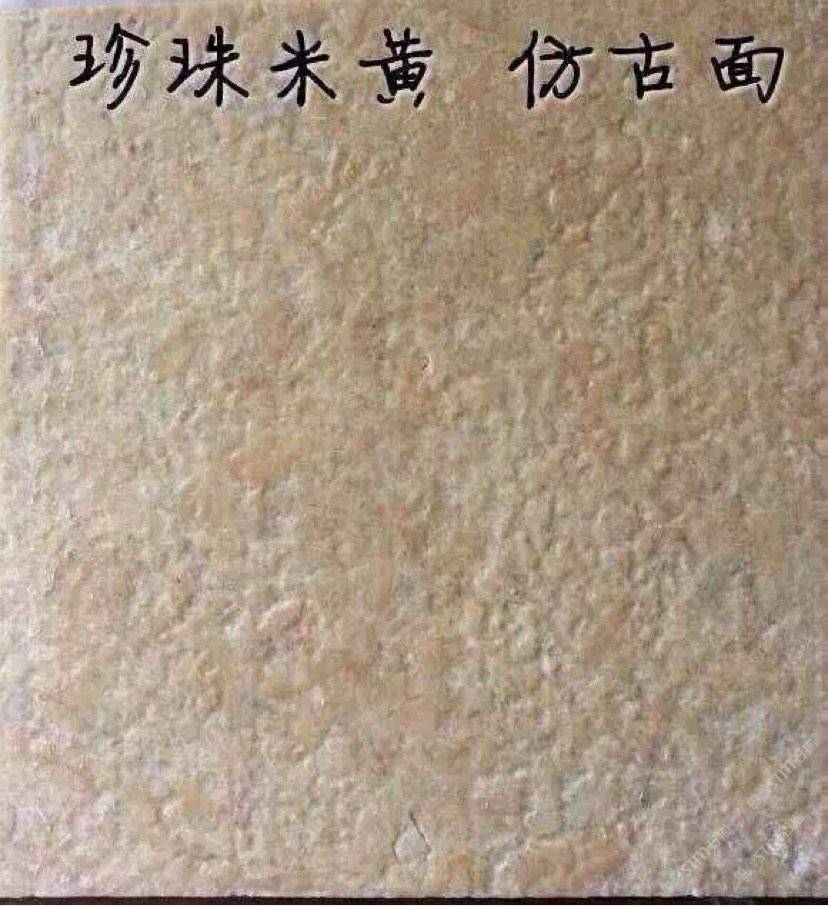 珍珠米黄 仿古面